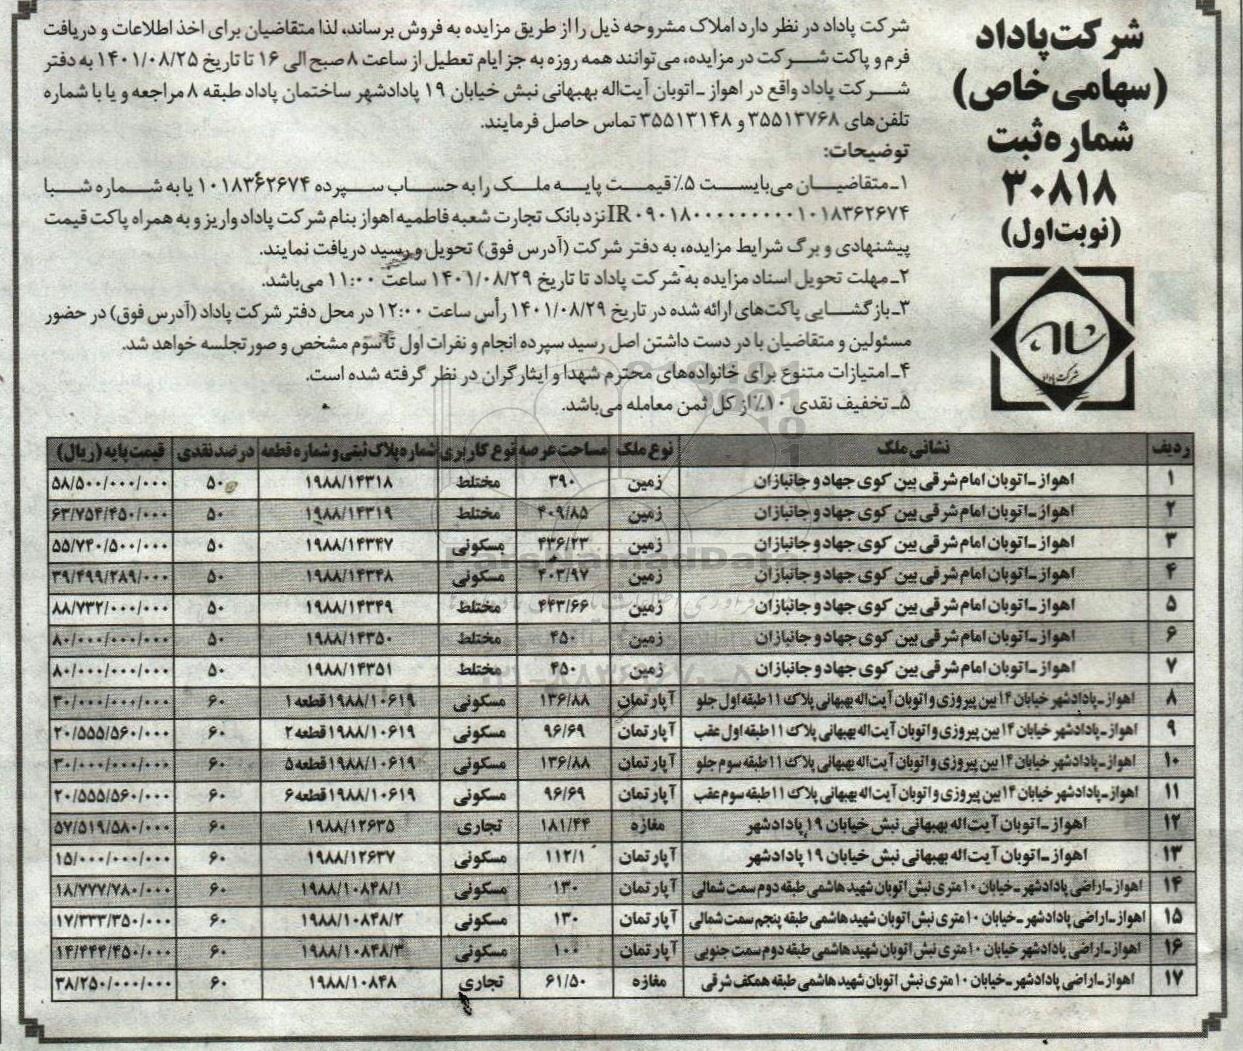 شرکت پاداد
(سهامی خاص)
شماره ثبت
۳۰۸۱۸
(نوبت اول)
شرکت پاداد در نظر دارد املاک مشروحه ذیل را از طریق مزایده به فروش برساند، لذا متقاضیان برای اخذ اطلاعات و دریافت
فرم و پاکت شرکت در مزایده، می‌توانند همه روزه به جز ایام تعطیل از ساعت ۸ صبح الی ۱۶ تا تاریخ ۱۴۰۱/۰۸/۲۵ به دفتر
شرکت پاداد واقع در اهواز ـ اتوبان آیت‌اله بهبهانی نبش خیابان ۱۹ پادادشهر ساختمان پاداد طبقه ۸ مراجعه و یا با شماره
تلفن‌های ۳۵۵۱۳۷۶۸ و ۳۵۵۱۳۱۴۸ تماس حاصل فرمایند.
توضیحات:
۱ـ متقاضیان می‌بایست ۵٪ قیمت پایه ملک را به حساب سپرده ۱۰۱۸۳۶۲۶۷۴ یا به شماره شبا
IR۰۹۰۱۸۰۰۰۰۰۰۰۰۰۰۱۰۱۸۳۶۲۶۷۴ نزد بانک تجارت شعبه فاطمیه اهواز بنام شرکت پاداد واریز و به همراه پاکت قیمت
پیشنهادی و برگ شرایط مزایده، به دفتر شرکت (آدرس فوق) تحویل و رسید دریافت نمایند.
۲ـ مهلت تحویل اسناد مزایده به شرکت پاداد تا تاریخ ۱۴۰۱/۰۸/۲۹ ساعت ۱۱:۰۰ می‌باشد.
۳ـ بازگشایی پاکت‌های ارائه شده در تاریخ ۱۴۰۱/۰۸/۲۹ رأس ساعت ۱۲:۰۰ در محل دفتر شرکت پاداد (آدرس فوق) در حضور
مسئولین و متقاضیان با در دست داشتن اصل رسید سپرده انجام و نفرات اول تا سوم مشخص و صورتجلسه خواهد شد.
۴ـ امتیازات متنوع برای خانواده‌های محترم شهدا و ایثارگران در نظر گرفته شده است.
۵ـ تخفیف نقدی ۱۰٪ از کل ثمن معامله می‌باشد.
شرکت پاداد
ردیف نشانی ملک نوع ملک مساحت عرصه نوع کاربری شماره پلاک ثبتی و شماره قطعه درصد نقدی قیمت پایه (ریال)
۱ اهواز ـ اتوبان امام شرقی بین کوی جهاد و جانبازان زمین ۳۹۰ مختلط ۱۹۸۸/۱۴۳۱۸ ۵۰ ۵۸/۵۰۰/۰۰۰/۰۰۰
۲ اهواز ـ اتوبان امام شرقی بین کوی جهاد و جانبازان زمین ۴۰۹/۸۵ مختلط ۱۹۸۸/۱۴۳۱۹ ۵۰ ۶۳/۷۵۴/۴۵۰/۰۰۰
۳ اهواز ـ اتوبان امام شرقی بین کوی جهاد و جانبازان زمین ۴۳۶/۲۳ مسکونی ۱۹۸۸/۱۴۳۴۷ ۵۰ ۵۵/۷۴۰/۵۰۰/۰۰۰
۴ اهواز ـ اتوبان امام شرقی بین کوی جهاد و جانبازان زمین ۴۰۳/۹۷ مسکونی ۱۹۸۸/۱۴۳۴۸ ۵۰ ۳۹/۴۹۹/۲۸۹/۰۰۰
۵ اهواز ـ اتوبان امام شرقی بین کوی جهاد و جانبازان زمین ۴۴۳/۶۶ مختلط ۱۹۸۸/۱۴۳۴۹ ۵۰ ۸۸/۷۳۲/۰۰۰/۰۰۰
۶ اهواز ـ اتوبان امام شرقی بین کوی جهاد و جانبازان زمین ۴۵۰ مختلط ۱۹۸۸/۱۴۳۵۰ ۵۰ ۸۰/۰۰۰/۰۰۰/۰۰۰
۷ اهواز ـ اتوبان امام شرقی بین کوی جهاد و جانبازان زمین ۴۵۰ مختلط ۱۹۸۸/۱۴۳۵۱ ۵۰ ۸۰/۰۰۰/۰۰۰/۰۰۰
۸ اهواز ـ پادادشهر خیابان ۱۴ بین پیروزی و اتوبان آیت‌اله بهبهانی پلاک ۱۱ طبقه اول جلو آپارتمان ۱۳۶/۸۸ مسکونی ۱۹۸۸/۱۰۶۱۹ قطعه ۱ ۶۰ ۳۰/۰۰۰/۰۰۰/۰۰۰
۹ اهواز ـ پادادشهر خیابان ۱۴ بین پیروزی و اتوبان آیت‌اله بهبهانی پلاک ۱۱ طبقه اول عقب آپارتمان ۹۶/۶۹ مسکونی ۱۹۸۸/۱۰۶۱۹ قطعه ۲ ۶۰ ۲۰/۵۵۵/۵۶۰/۰۰۰
۱۰ اهواز ـ پادادشهر خیابان ۱۴ بین پیروزی و اتوبان آیت‌اله بهبهانی پلاک ۱۱ طبقه سوم جلو آپارتمان ۱۳۶/۸۸ مسکونی ۱۹۸۸/۱۰۶۱۹ قطعه ۵ ۶۰ ۳۰/۰۰۰/۰۰۰/۰۰۰
۱۱ اهواز ـ پادادشهر خیابان ۱۴ بین پیروزی و اتوبان آیت‌اله بهبهانی پلاک ۱۱ طبقه سوم عقب آپارتمان ۹۶/۶۹ مسکونی ۱۹۸۸/۱۰۶۱۹ قطعه ۶ ۶۰ ۲۰/۵۵۵/۵۶۰/۰۰۰
۱۲ اهواز ـ اتوبان آیت‌اله بهبهانی نبش خیابان ۱۹ پادادشهر مغازه ۱۸۱/۴۴ تجاری ۱۹۸۸/۱۲۶۳۵ ۶۰ ۵۷/۵۱۹/۵۸۰/۰۰۰
۱۳ اهواز ـ اتوبان آیت‌اله بهبهانی نبش خیابان ۱۹ پادادشهر آپارتمان ۱۱۲/۱ مسکونی ۱۹۸۸/۱۲۶۳۷ ۶۰ ۱۵/۰۰۰/۰۰۰/۰۰۰
۱۴ اهواز ـ اراضی پادادشهر ـ خیابان ۱۰ متری نبش اتوبان شهید هاشمی طبقه دوم سمت شمالی آپارتمان ۱۳۰ مسکونی ۱۹۸۸/۱۰۸۴۸/۱ ۶۰ ۱۸/۷۷۷/۷۸۰/۰۰۰
۱۵ اهواز ـ اراضی پادادشهر ـ خیابان ۱۰ متری نبش اتوبان شهید هاشمی طبقه پنجم سمت شمالی آپارتمان ۱۳۰ مسکونی ۱۹۸۸/۱۰۸۴۸/۲ ۶۰ ۱۷/۳۳۳/۳۵۰/۰۰۰
۱۶ اهواز ـ اراضی پادادشهر خیابان ۱۰ متری نبش اتوبان شهید هاشمی طبقه دوم سمت جنوبی آپارتمان ۱۰۰ مسکونی ۱۹۸۸/۱۰۸۴۸/۳ ۶۰ ۱۴/۴۴۴/۴۵۰/۰۰۰
۱۷ اهواز ـ اراضی پادادشهر ـ خیابان ۱۰ متری نبش اتوبان شهید هاشمی طبقه همکف شرقی مغازه ۶۱/۵۰ تجاری ۱۹۸۸/۱۰۸۴۸ ۶۰ ۳۸/۲۵۰/۰۰۰/۰۰۰